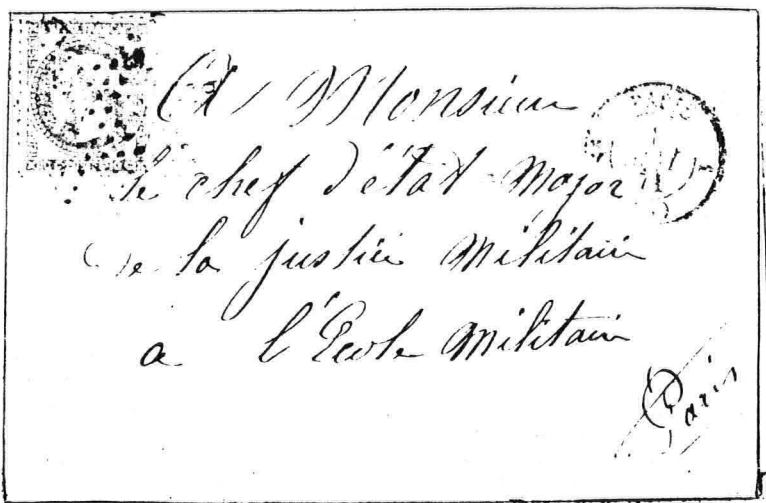 A Monsieur
le chef d'état-major
de la justice militaire
a l'Ecole militaire
Paris